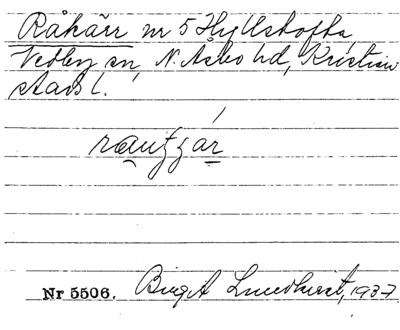 Råhärr nr 5 Hyllstofta,
Vedby sn, N. Åsbo hd, Kristian
stads l.
Nr 5506. Birgit Lundkvist, 1937